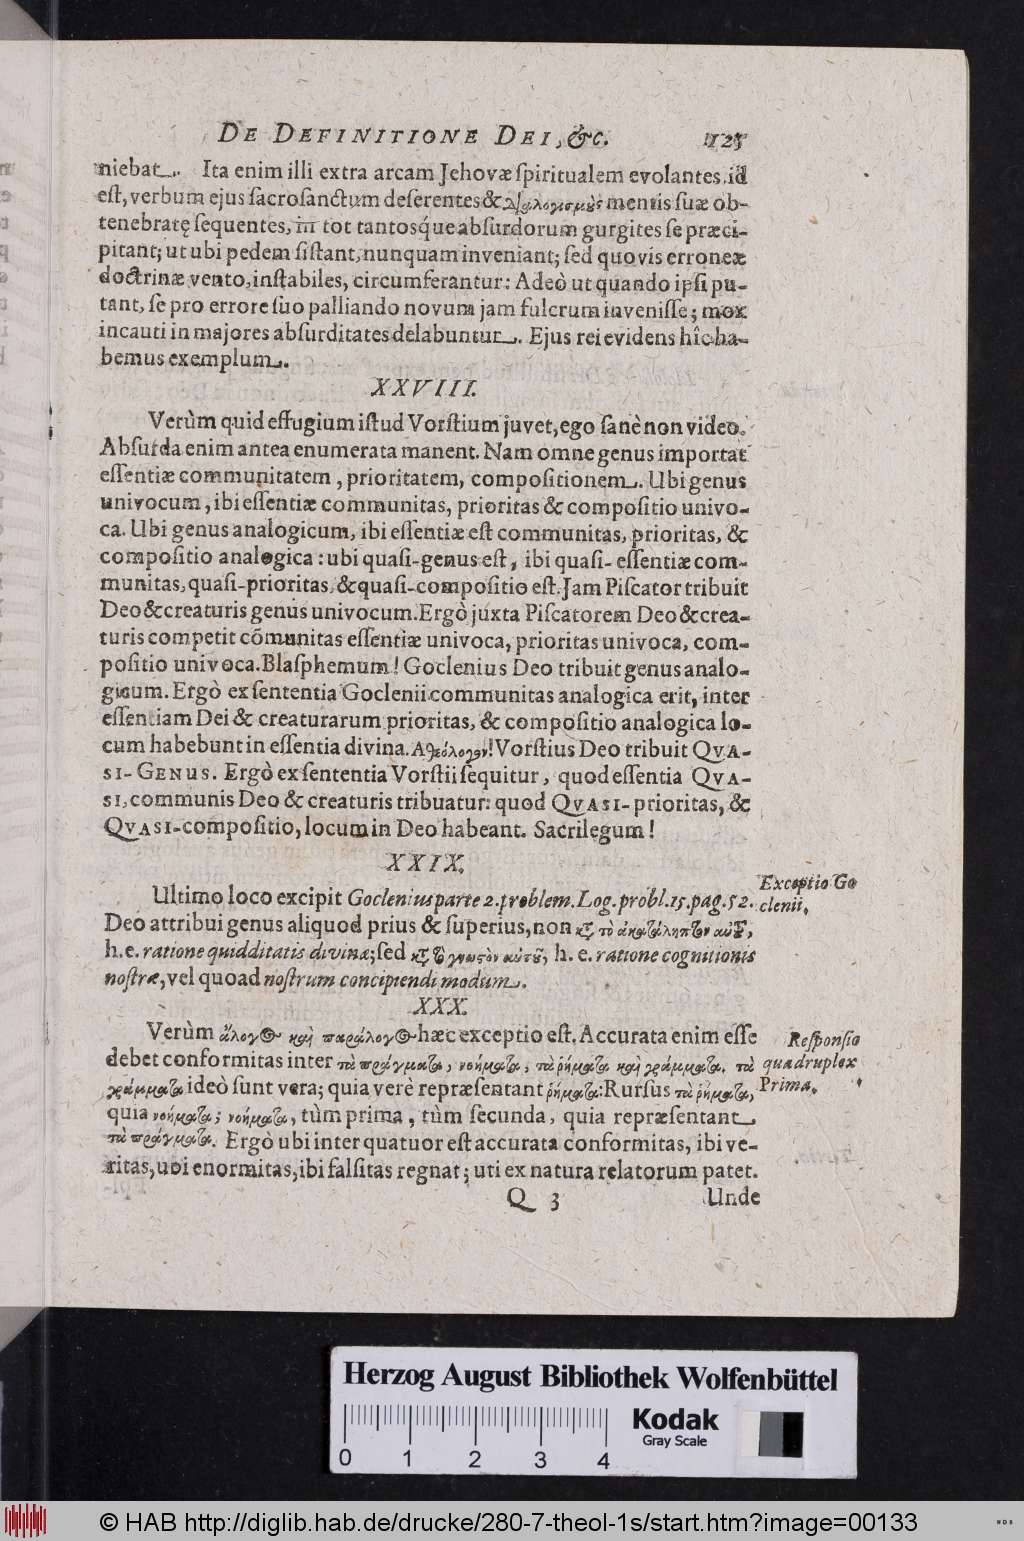 DE DEFINITIONE DEI, &c. 125
niebat. Ita enim illi extra arcam Jehovæ ſpiritualem evolantes, id
eſt, verbum ejus ſacroſanctum deſerentes & διαλογισμὺς mentis ſuæ ob-
tenebratę ſequentes, in tot tantosq́ue abſurdorum gurgites ſe præci-
pitant; ut ubi pedem ſiſtant, nunquam inveniant; ſed quovis erroneæ
doctrinæ vento, inſtabiles, circumferantur: Adeò ut quando ipſi pu-
tant, ſe pro errore ſuo palliando novum jam fulcrum inveniſſe; mox
incauti in majores abſurditates delabuntur. Ejus rei evidens hîc ha-
bemus exemplum.
XXVIII.
Verùm quid effugium iſtud Vorſtium juvet, ego ſanè non video.
Abſurda enim antea enumerata manent. Nam omne genus importat
eſſentiæ communitatem, prioritatem, compoſitionem. Ubi genus
univocum, ibi eſſentiæ communitas, prioritas & compoſitio univo-
ca. Ubi genus analogicum, ibi eſſentiæ eſt communitas, prioritas, &
compoſitio analogica: ubi quaſi-genus eſt, ibi quaſi-eſſentiæ com-
munitas, quaſi-prioritas, & quaſi-compoſitio eſt. Jam Piſcator tribuit
Deo & creaturis genus univocum. Ergò juxta Piſcatorem Deo & crea-
turis competit cõmunitas eſſentiæ univoca, prioritas univoca, com-
poſitio univoca. Blaſphemum! Goclenius Deo tribuit genus analo-
gicum. Ergò ex ſententia Goclenii communitas analogica erit, inter
eſſentiam Dei & creaturarum prioritas, & compoſitio analogica lo-
cum habebunt in eſſentia divina. Αθεόλογον! Vorſtius Deo tribuit QVA-
SI-GENUS. Ergò ex ſententia Vorſtii ſequitur, quod eſſentia QVA-
SI, communis Deo & creaturis tribuatur: quod QVASI-prioritas, &
QVASI-compoſitio, locum in Deo habeant. Sacrilegum!
XXIX.
Exceptio Go
clenii.
Ultimo loco excipit Goclenius parte 2. problem. Log. probl. 15. pag. 52.
Deo attribui genus aliquod prius & ſuperius, non κτ τὸ ἀκατάληπτον αὐτ͂,
h. e. ratione quidditatis divinæ; ſed κτ τὸ γνωστὸν αὐτοῦ, h. e. ratione cognitionis
noſtræ, vel quoad noſtrum concipiendi modum.
XXX.
Responsio
quadruplex
Prima.
Verùm ἄλογος καὶ παράλογος hæc exceptio eſt. Accurata enim eſſe
debet conformitas inter τὰ πράγματα, νοήματα, τὰ ῥήματα καὶ γράμματα. τὰ
γράμματα ideò ſunt vera; quia verè repræſentant ῥήματα: Rurſus τὰ ῥήματα,
quia νοήματα; νοήματα, tùm prima, tùm ſecunda, quia repræſentant
τὰ πράγματα. Ergò ubi inter quatuor eſt accurata conformitas, ibi ve-
ritas, ubi enormitas, ibi falſitas regnat; uti ex natura relatorum patet.
Q 3 Unde
Herzog August Bibliothek Wolfenbüttel
Kodak
Gray Scale
0 1 2 3 4
© HAB http://diglib.hab.de/drucke/280-7-theol-1s/start.htm?image=00133